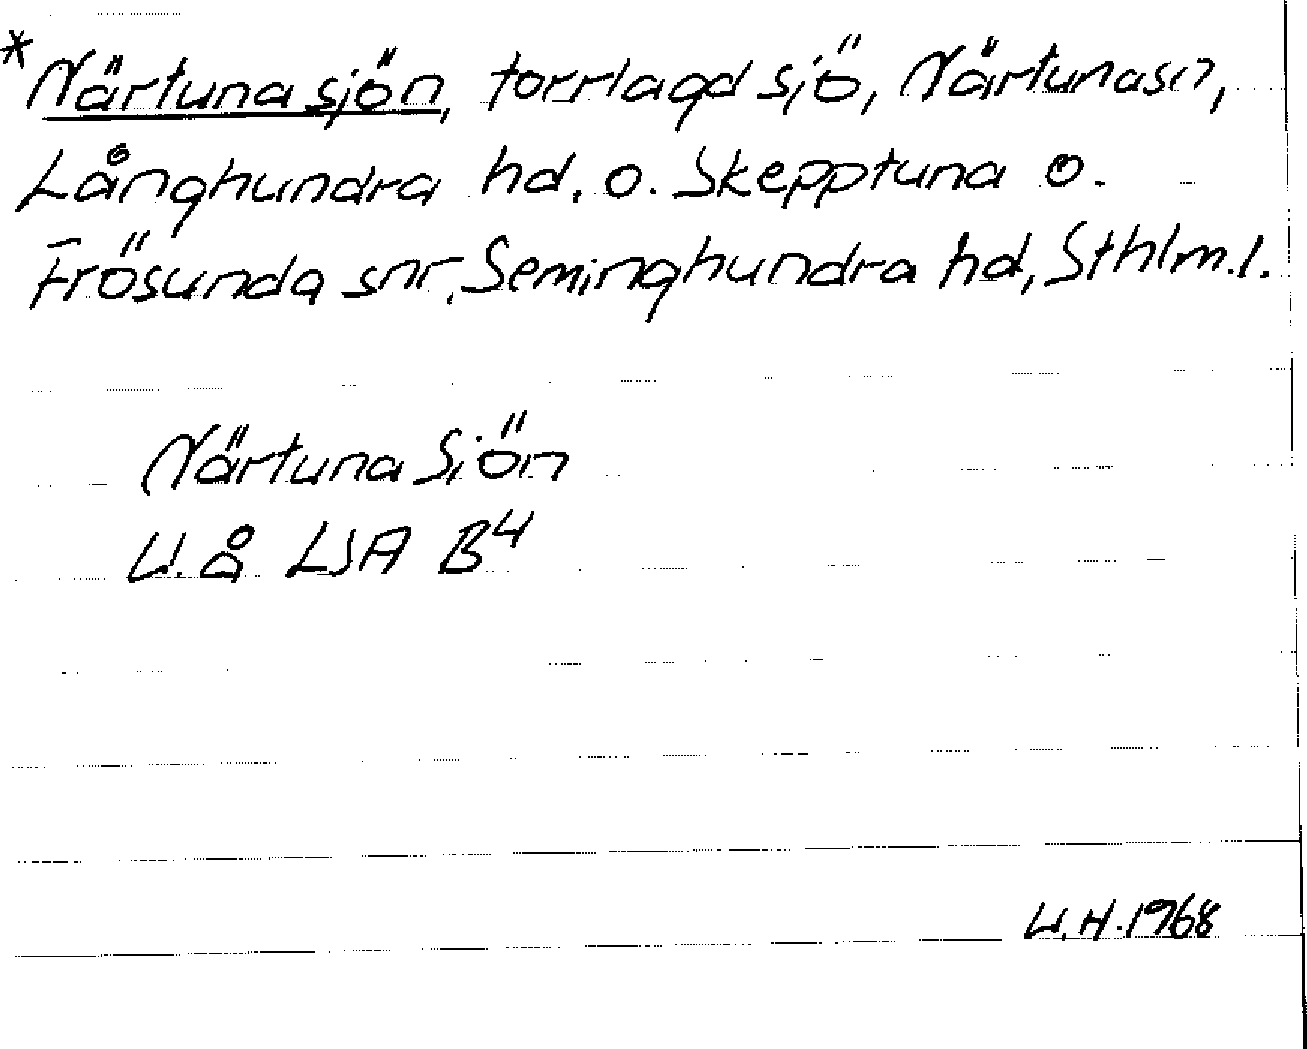 *Närtunasjön, torrlagd sjö, Närtuna sn,
Långhundra hd. o. Skepptuna o.
Frösunda snr, Seminghundra hd, Sthlm.l.
Närtuna Sjön
U.å LSA B4
U.H.1968